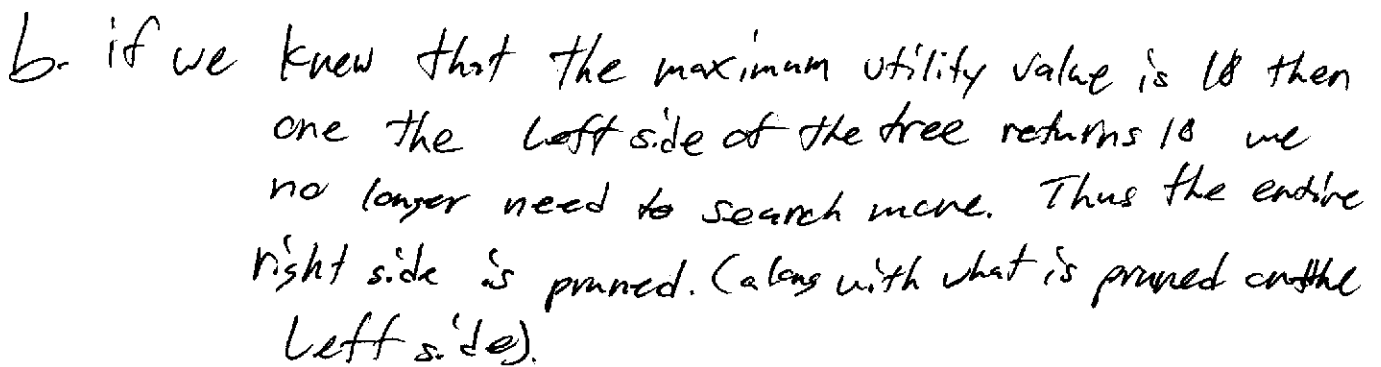 b. if we knew that the maximum utility value is 18 then
one the left side of the tree returns 18 we
no longer need to search more. Thus the entire
right side is pruned. (along with what is pruned on the
Left side).